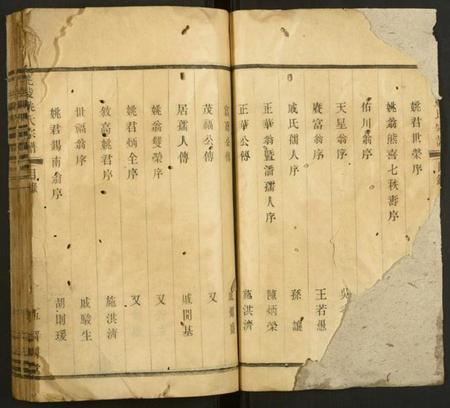 姚君世榮序
姚翁熊喜七秩壽序
佑川翁序
天星翁序 吳
賡富翁序 王若愚
戚氏孺人序 孫讓
正華翁暨潘孺人序 陳炳榮
正華公傳 施洪濟
富公傳
茂福公傳 又
居孺人傳 戚開基
姚翁雙榮序 又
姚君炳全序 又
敘高姚君序 施洪濟
世福翁序 戚駿生
姚君錫南翁序 胡則瑗
姚氏宗譜 目錄